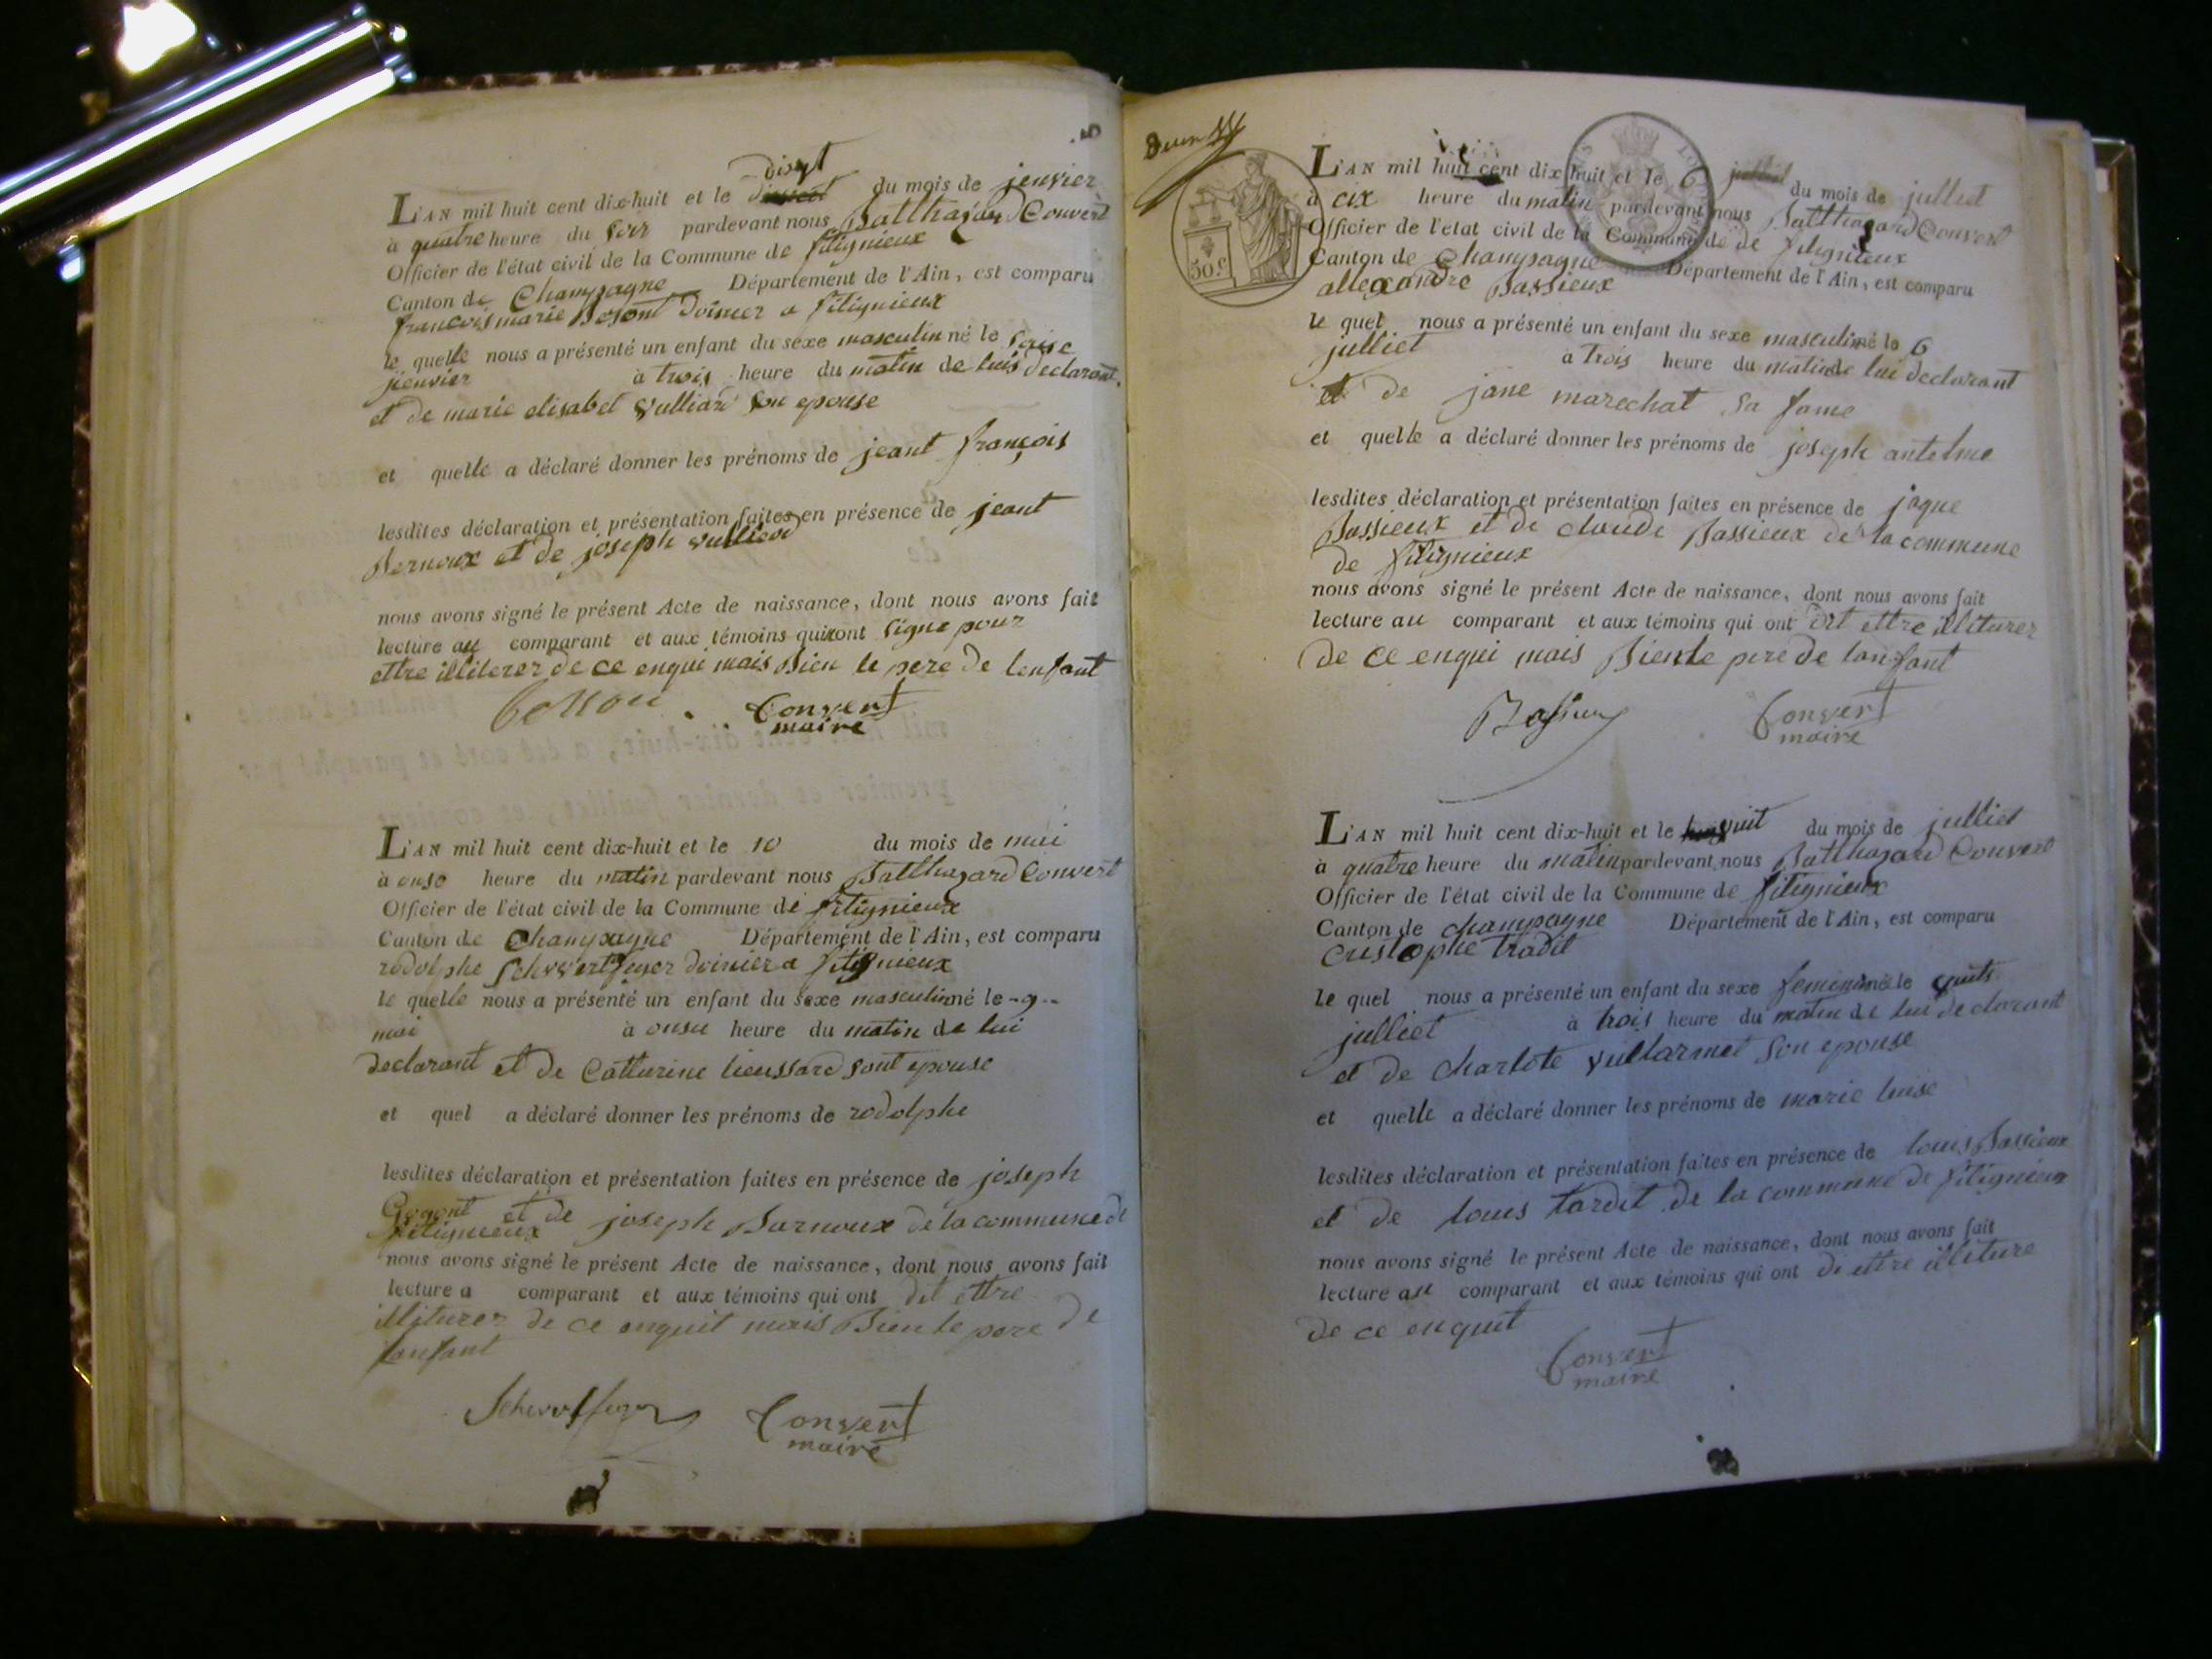 L'AN mil huit cent dix-huit et le du mois de jenvier
à quatre heure du soir pardevant nous Balthazard Convert
Officier de l'état civil de la Commune de fitignieux
Canton de Champagne Département de l'Ain, est comparu
francois marie a fitignieux
le quelle nous a présenté un enfant du sexe masculin né le saise
jienvier à trois heure du matin de luis declarant
et de marie elisabet vulliard son epouse
et quelle a déclaré donner les prénoms de jeant françois
lesdites déclaration et présentation faites en présence de jeant
Bernoux et de joseph vulliard
nous avons signé le présent Acte de naissance, dont nous avons fait
lecture au comparant et aux témoins qui ont signe pour
ettre illiterer de ce enqui mais Bien le pere de lenfant
Convert
maire
L'AN mil huit cent dix-huit et le 10 du mois de mai
à onse heure du matin pardevant nous Balthazard Convert
Officier de l'état civil de la Commune de fitignieux
Canton de Champagne Département de l'Ain, est comparu
rodolphe a fitignieux
le quelle nous a présenté un enfant du sexe masculin né le -9-
mai à onse heure du matin de lui
declarant et de Catturine lieussard sont epouse
et quel a déclaré donner les prénoms de rodolphe
lesdites déclaration et présentation faites en présence de joseph
et de joseph Burnoux de la commune de
fitignieux
nous avons signé le présent Acte de naissance, dont nous avons fait
lecture a comparant et aux témoins qui ont dit ettre
illiturer de ce enquit mais Bien le pere de
lanfant
Convert
maire
50.C
L'AN mil huit cent dix-huit et le 6 julliet du mois de julliet
à cix heure du matin pardevant nous Balthazard Convert
Officier de l'etat civil de la Commune de de fitignieux
Canton de Champagne Département de l'Ain, est comparu
allexandre Bassieux
le quel nous a présenté un enfant du sexe masculin né le 6
julliet à trois heure du matin de lui declarant
et de jane marechat sa fame
et quelle a déclaré donner les prénoms de joseph antelme
lesdites déclaration et présentation faites en présence de jaque
Bassieux et de claude Bassieux de la commune
de fitignieux
nous avons signé le présent Acte de naissance, dont nous avons fait
lecture au comparant et aux témoins qui ont dit ettre illiturer
de ce enqui mais Bien le pere de lanfant
Convert
maire
L'AN mil huit cent dix-huit et le vuit du mois de julliet
à quatre heure du matin pardevant nous Balthazard Convert
Officier de l'état civil de la Commune de fitignieux
Canton de champagne Département de l'Ain, est comparu
cristophe tradit
le quel nous a présenté un enfant du sexe feminin né le vuits
julliet à trois heure du matin de lui declarant
et de charlote vullarmet son epouse
et quelle a déclaré donner les prénoms de marie luise
lesdites déclaration et présentation faites en présence de louis Bassieux
et de louis tardit de la commune de fitignieux
nous avons signé le présent Acte de naissance, dont nous avons fait
lecture au comparant et aux témoins qui ont di ettre illiture
de ce enquit
Convert
maire